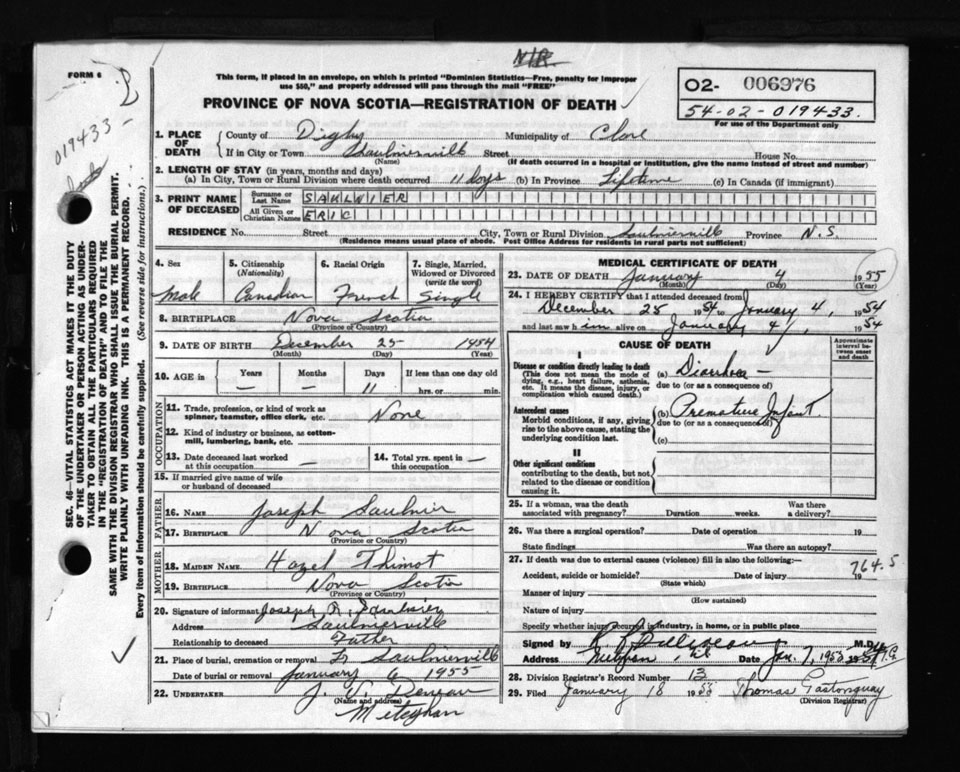 N/R
FORM 6
This form, if placed in an envelope, on which is printed "Dominion Statistics—Free, penalty for improper
use $50," and properly addressed will pass through the mail "FREE"
PROVINCE OF NOVA SCOTIA—REGISTRATION OF DEATH
O2- 006976
54-02-019433.
For use of the Department only
019433-
SEC. 46—VITAL STATISTICS ACT MAKES IT THE DUTY
OF THE UNDERTAKER OR PERSON ACTING AS UNDER-
TAKER TO OBTAIN ALL THE PARTICULARS REQUIRED
IN THE "REGISTRATION OF DEATH" AND TO FILE THE
SAME WITH THE DIVISION REGISTRAR WHO SHALL ISSUE THE BURIAL PERMIT.
WRITE PLAINLY WITH UNFADING INK. THIS IS A PERMANENT RECORD.
Every item of information should be carefully supplied. (See reverse side for instructions.)
1. PLACE OF DEATH
County of Digby Municipality of Clare
If in City or Town Saulnierville Street House No.
(Name) (If death occurred in a hospital or institution, give the name instead of street and number)
2. LENGTH OF STAY (in years, months and days)
(a) In City, Town or Rural Division where death occurred 11 days (b) In Province Lifetime (c) In Canada (if immigrant)
3. PRINT NAME OF DECEASED
Surname or Last Name SAULNIER
All Given or Christian Names ERIC
RESIDENCE No. Street City, Town or Rural Division Saulnierville Province N.S.
(Residence means usual place of abode. Post Office Address for residents in rural parts not sufficient)
4. Sex 5. Citizenship (Nationality) 6. Racial Origin 7. Single, Married, Widowed or Divorced (write the word)
Male Canadian French Single
8. BIRTHPLACE Nova Scotia
(Province or Country)
9. DATE OF BIRTH December 25- 1954
(Month) (Day) (Year)
10. AGE in Years Months Days If less than one day old
— — 11 hrs. or min.
OCCUPATION
11. Trade, profession, or kind of work as spinner, teamster, office clerk, etc. None
12. Kind of industry or business, as cotton-mill, lumbering, bank, etc.
13. Date deceased last worked at this occupation —
14. Total yrs. spent in this occupation —
15. If married give name of wife or husband of deceased
FATHER
16. NAME Joseph Saulnier
17. BIRTHPLACE Nova Scotia
(Province or Country)
MOTHER
18. MAIDEN NAME Hazel Thimot
19. BIRTHPLACE Nova Scotia
(Province or Country)
20. Signature of informant Joseph R. Saulnier
Address Saulnierville
Relationship to deceased Father
21. Place of burial, cremation or removal Saulnierville
Date of burial or removal January 6 1955
22. UNDERTAKER J. V. Deveau
(Name and address)
Meteghan
MEDICAL CERTIFICATE OF DEATH
23. DATE OF DEATH January 4 1955
(Month) (Day) (Year)
24. I HEREBY CERTIFY that I attended deceased from
December 25 1954 to January 4, 1954
and last saw him alive on January 4, 1954
CAUSE OF DEATH
Approximate interval between onset and death
I
Disease or condition directly leading to death
(This does not mean the mode of dying, e.g., heart failure, asthenia, etc. It means the disease, injury, or complication which caused death.)
(a) Diarrhoea -
due to (or as a consequence of)
Antecedent causes
Morbid conditions, if any, giving rise to the above cause, stating the underlying condition last.
(b) Premature Infant.
due to (or as a consequence of)
(c)
II
Other significant conditions
contributing to the death, but not related to the disease or condition causing it.
25. If a woman, was the death associated with pregnancy? Duration weeks. Was there a delivery?
26. Was there a surgical operation? Date of operation 19
State findings Was there an autopsy?
27. If death was due to external causes (violence) fill in also the following:—
764.5
Accident, suicide or homicide? Date of injury 19
(State which)
Manner of injury
(How sustained)
Nature of injury
Specify whether injury occurred in industry, in home, or in public place
Signed by M.D.
Address Date Jan. 7, 1955
28. Division Registrar's Record Number 13
29. Filed January 18 1955 Thomas Gastonguay
(Division Registrar)